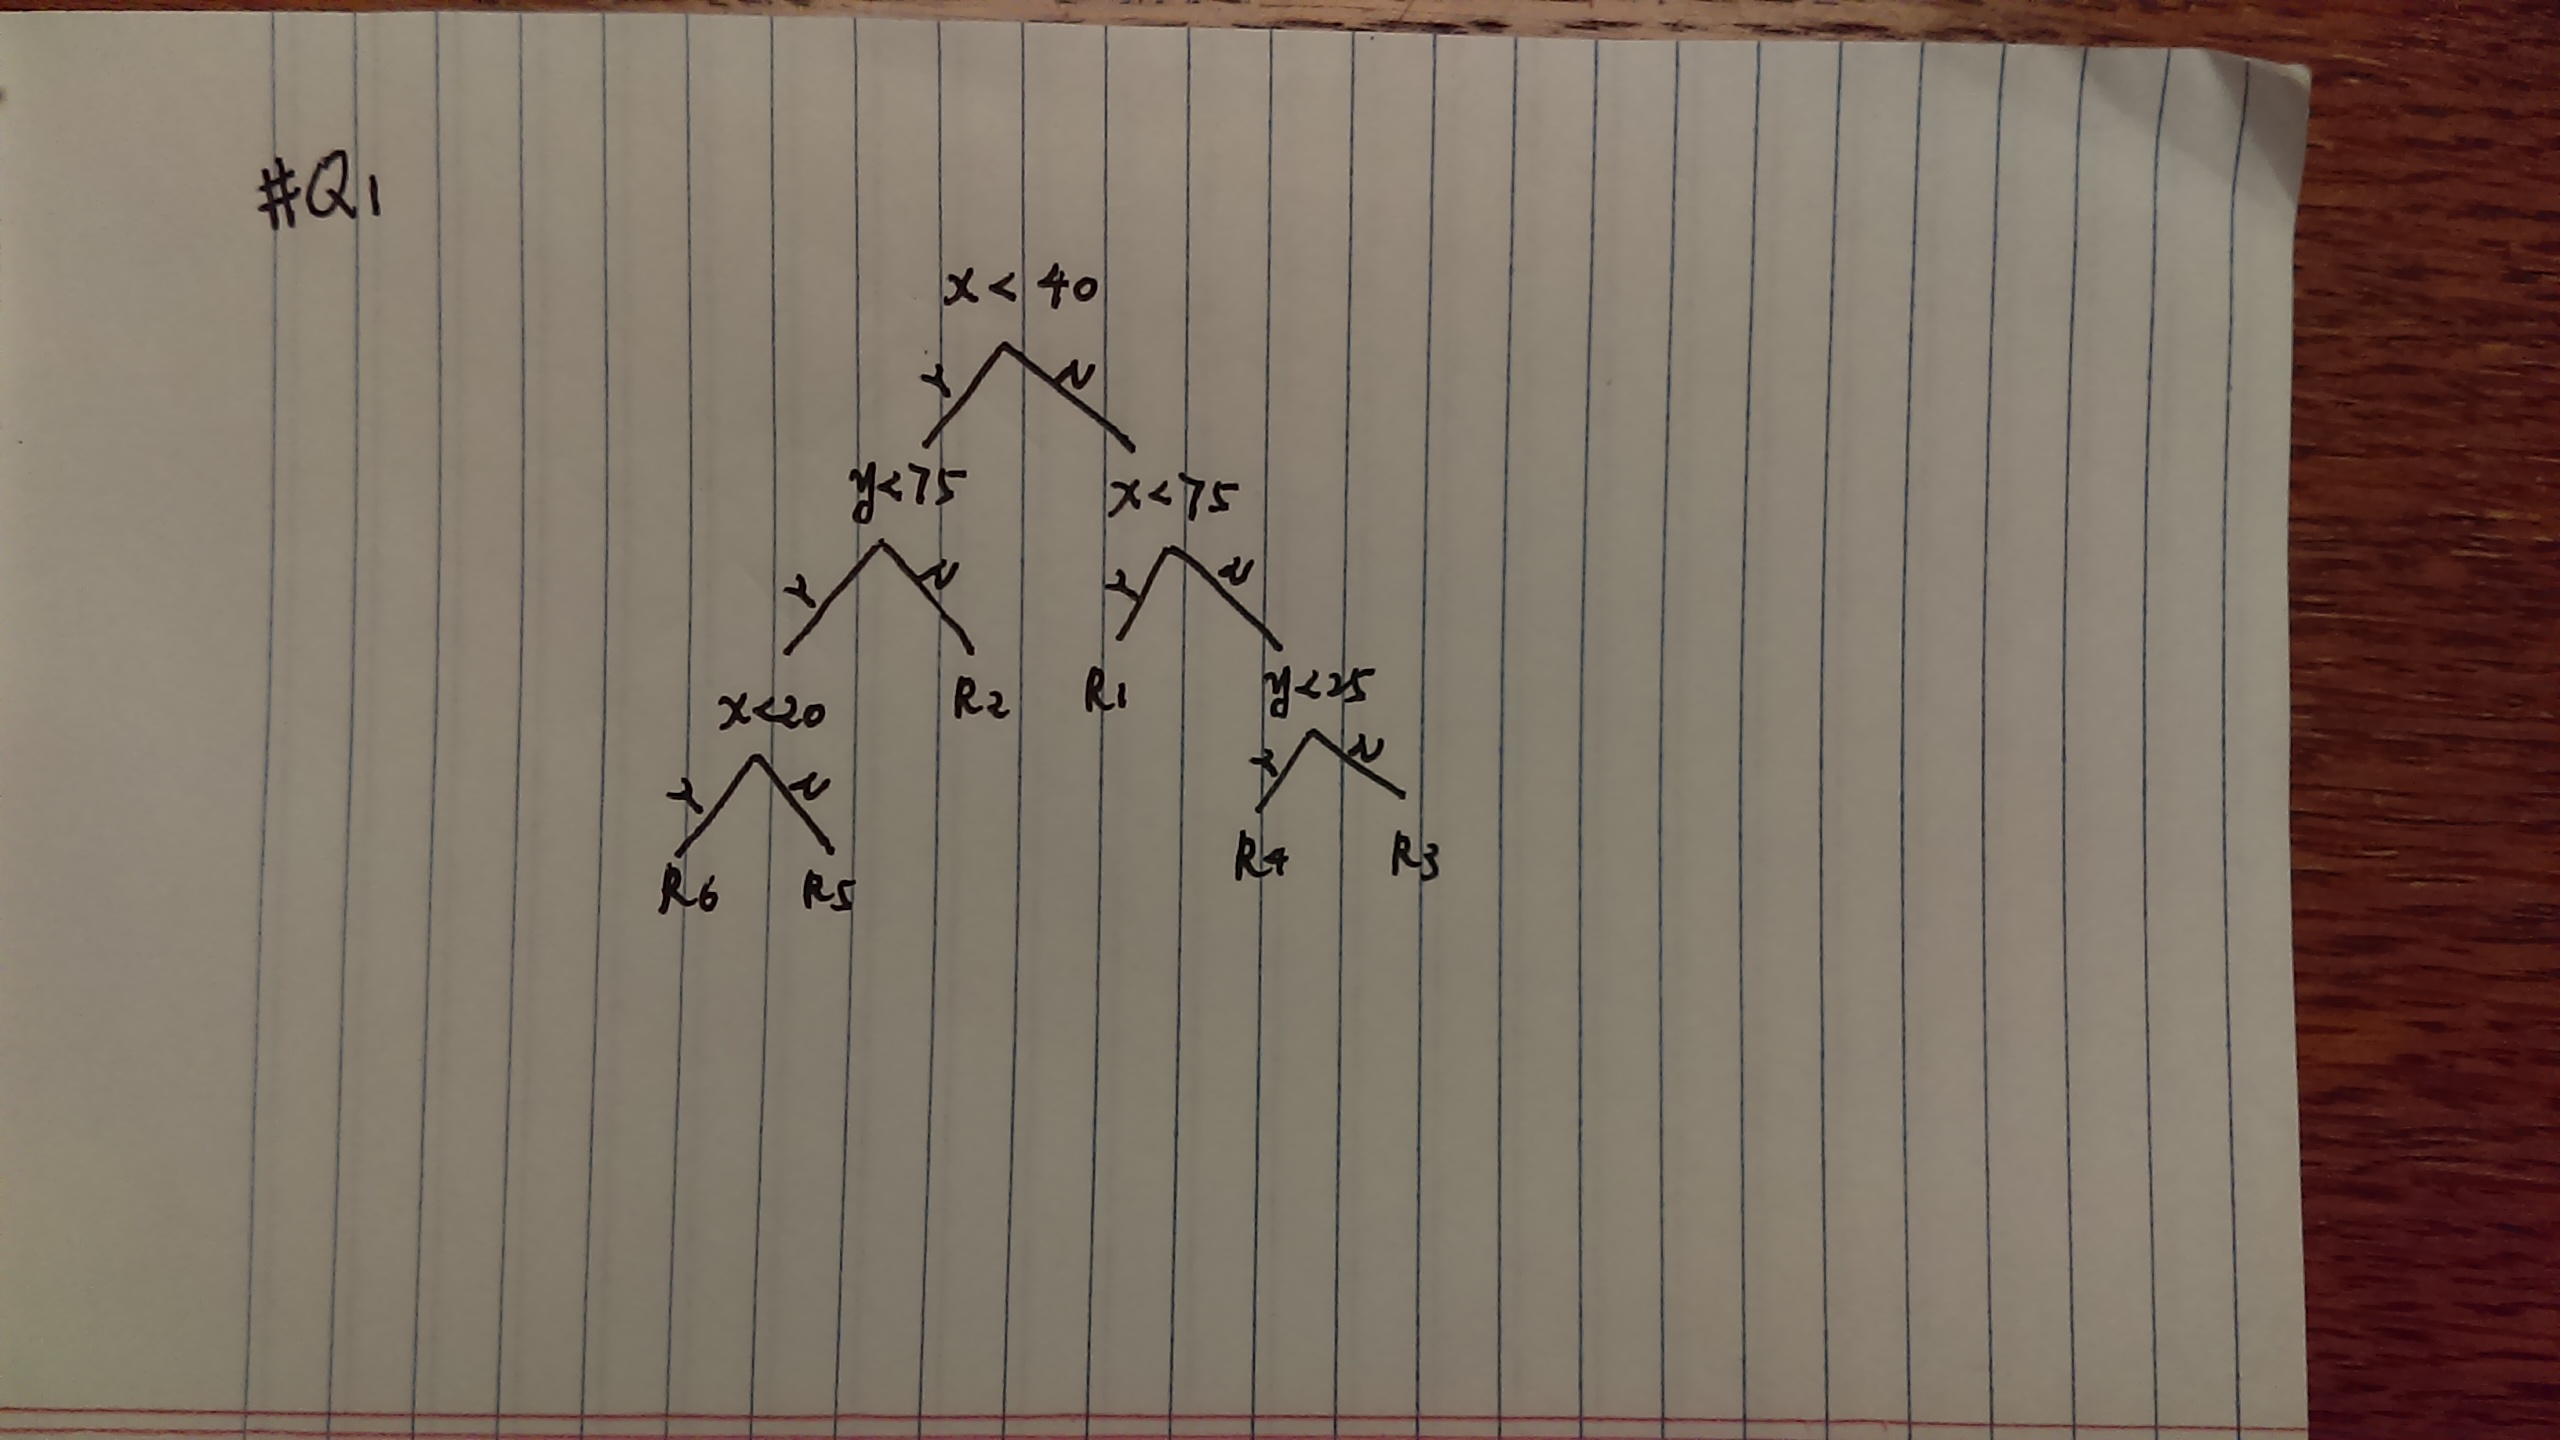 #Q1
x < 40
Y N
y<75 x<75
Y N Y N
x<20 R2 R1 y<25
Y N Y N
R6 R5 R4 R3